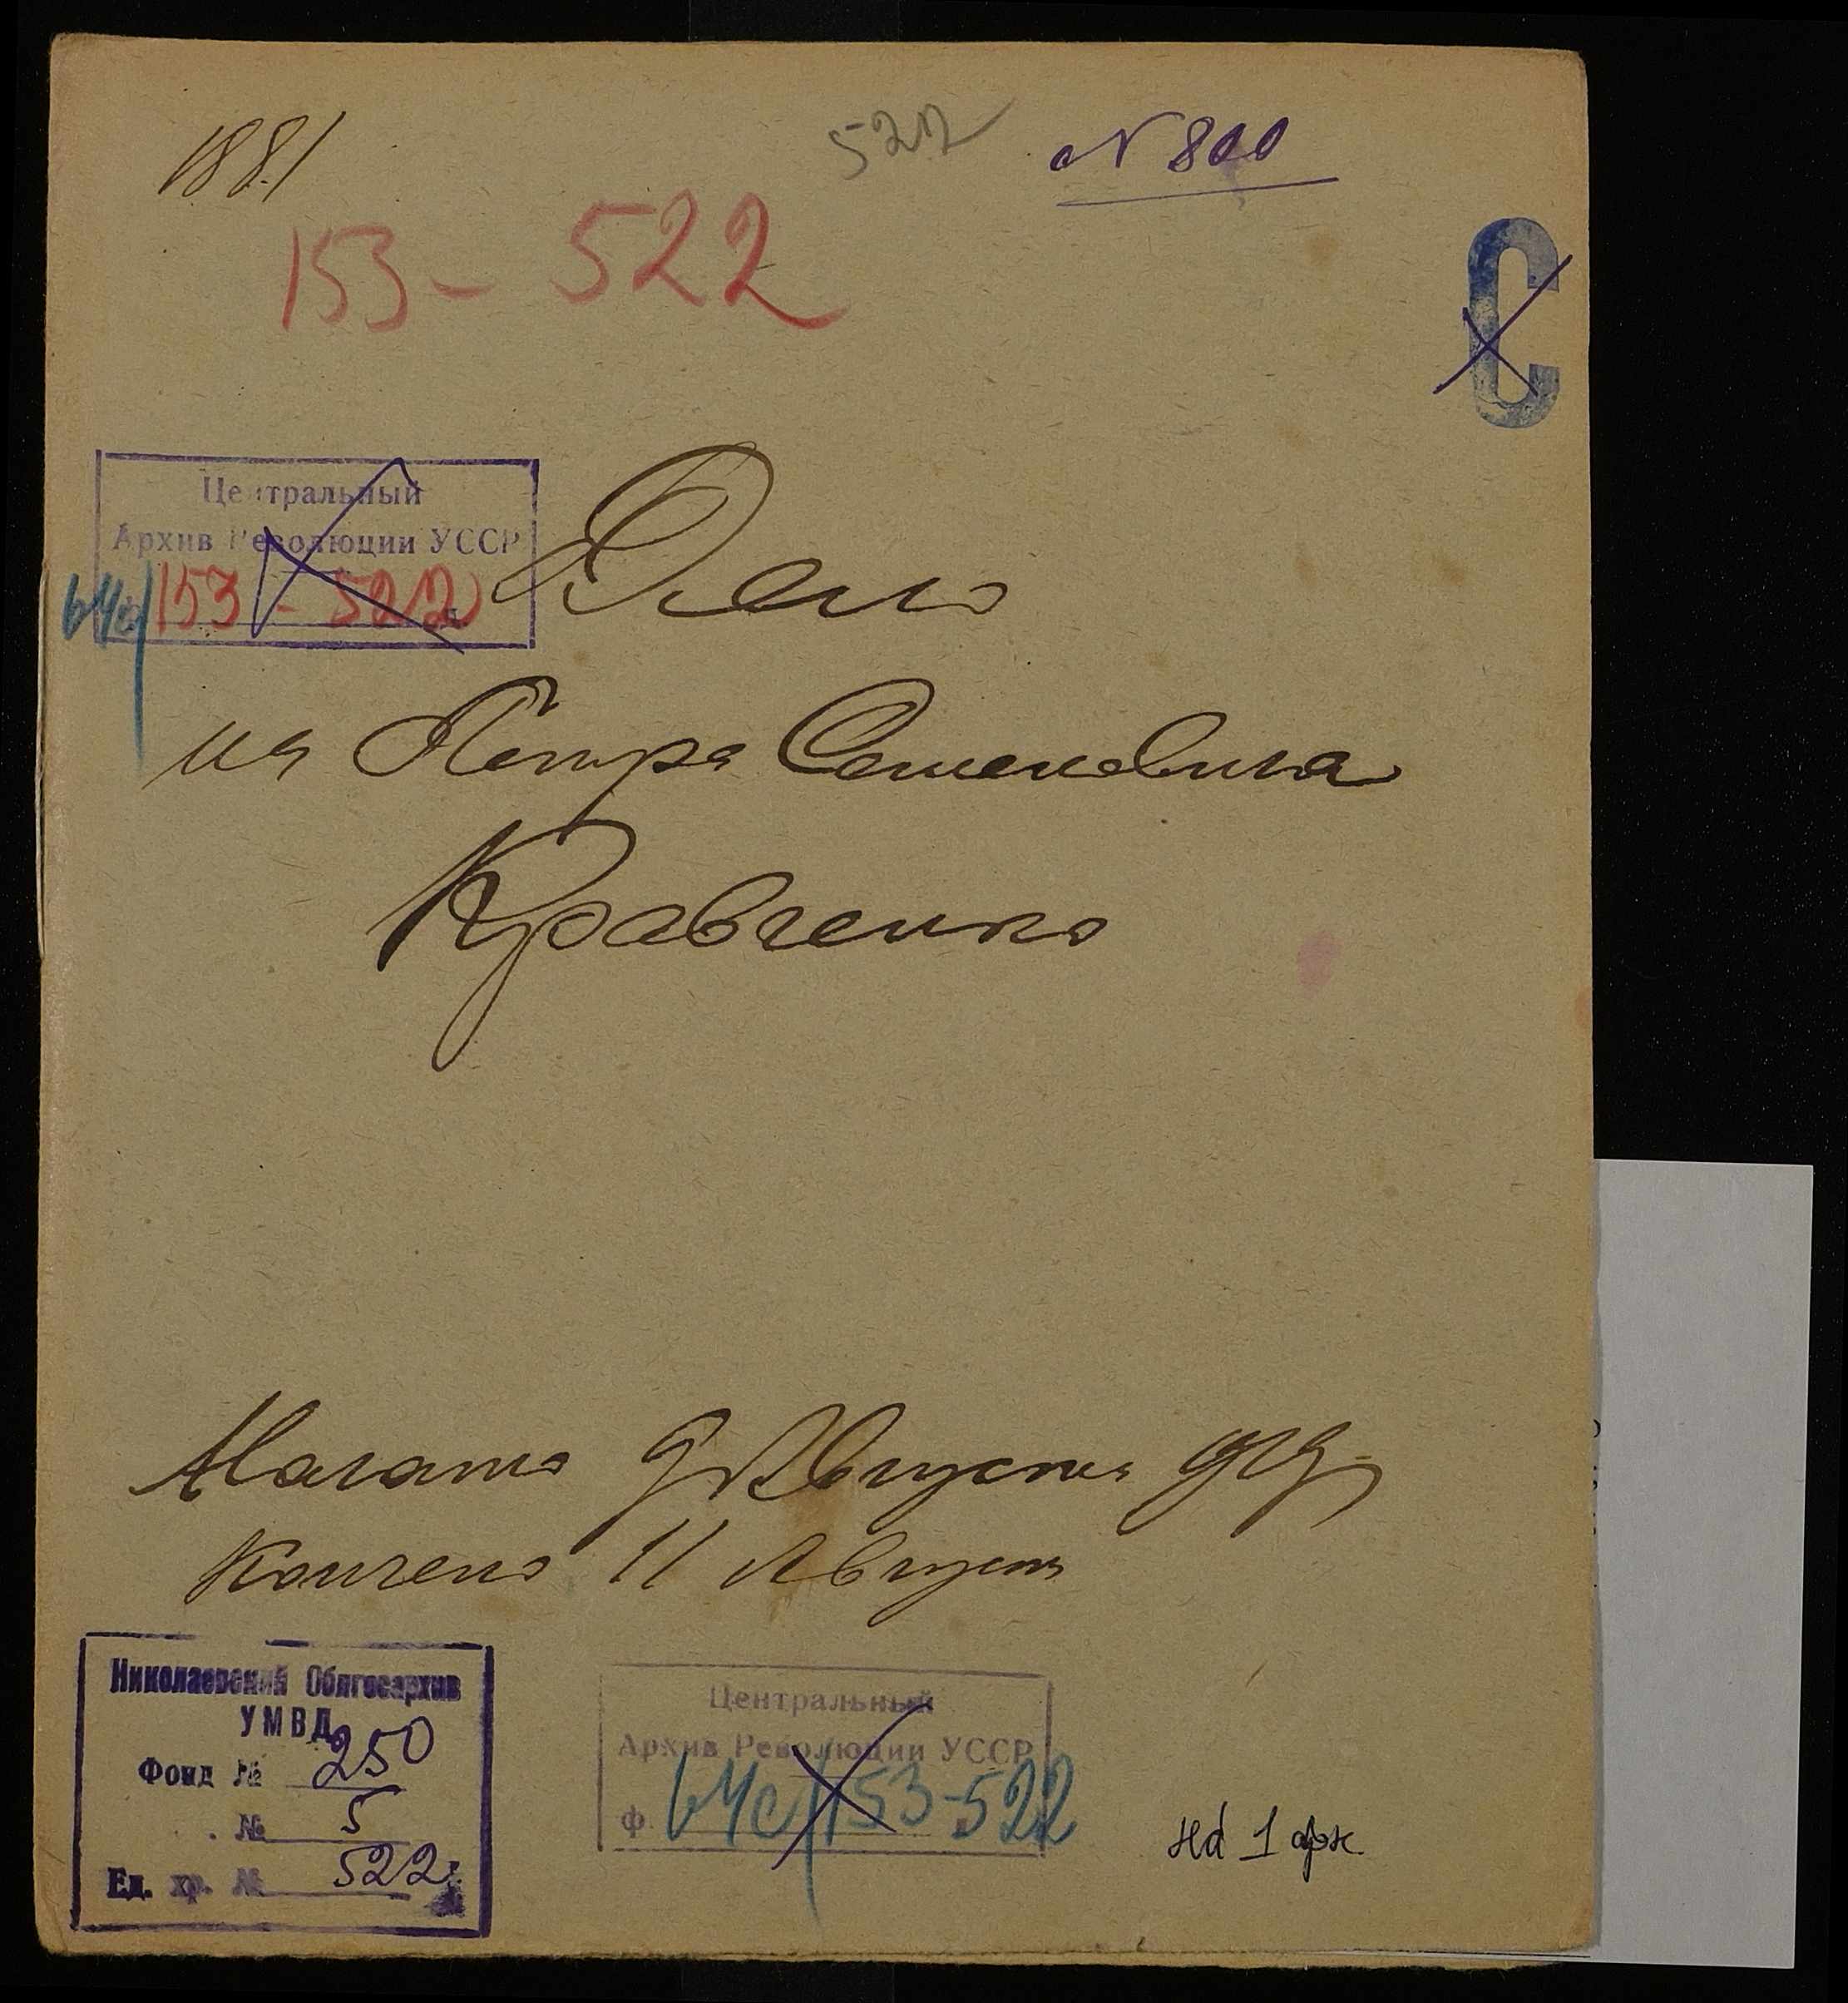 1881
522
N 800
153 - 522
С
Центральный
Архив Революции УССР
64с/153 - 522
Дело
на Петра Семеновича
Кравченко
Начато 9 Августа 919
Кончено 11 Августа
Николаевский Облгосархив
УМВД
Фонд № 250
№ 5
Ед. хр. № 522
Центральный
Архив Революции УССР
ф. 64с/153-522
На 1 арк